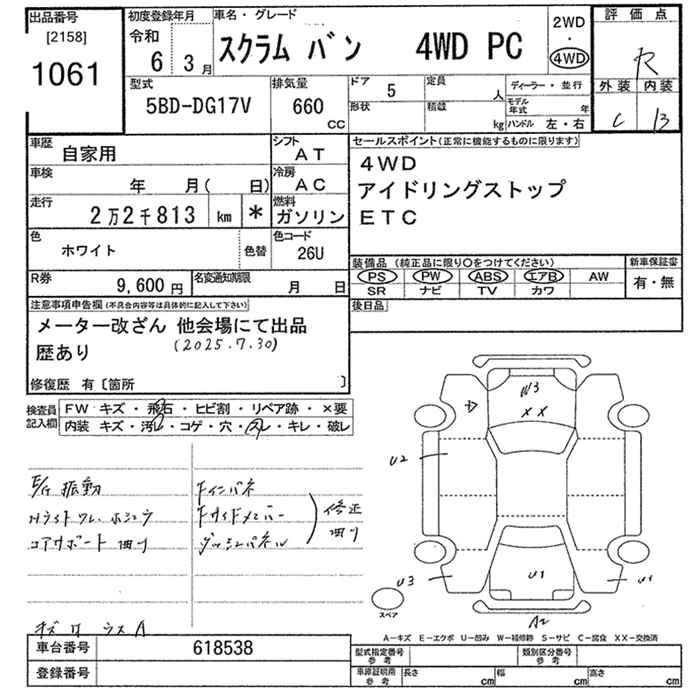 出品番号
[2158]
1061
初度登録年月
令和
6年3月
車名・グレード
スクラム バン 4WD PC
2WD
・
4WD
評価点
R
外装 内装
C B
型式
5BD-DG17V
排気量
660
CC
ドア
5
定員
人
形状
積載
kg
ディーラー・並行
モデル年式 年
ハンドル 左・右
車歴
自家用
シフト
AT
車検
年 月( 日)
冷房
AC
走行
2万2千813 km *
燃料
ガソリン
色
ホワイト
色替
色コード
26U
R券
9,600円
名変通知期限
月 日
セールスポイント(正常に機能するものに限ります)
4WD
アイドリングストップ
ETC
装備品(純正品に限り○をつけてください)
PS PW ABS エアB AW
SR ナビ TV カワ
新車保証書
有・無
後日品
注意事項申告欄(不具合内容等は具体的に記入して下さい)
メーター改ざん 他会場にて出品
歴あり (2025.7.30)
修復歴 有〔箇所 〕
検査員
記入欄
FW キズ・飛石・ヒビ割・リペア跡・×要
内装 キズ・汚レ・コゲ・穴・凹・キレ・破レ
E/G 振動
Hライトワレ ホシュウ
コアサポート 曲り
Fインパネ
Fサイドメンバー
ダッシュパネル
修正
曲り
キズ 凹 ラスA
W3
XX
U2
U3
U1
U1
A2
スペア
A-キズ E-エクボ U-凹み W-補修跡 S-サビ C-腐食 XX-交換済
車台番号
618538
登録番号
型式指定番号
参考
類別区分番号
参考
車庫証明用
参考
長さ cm
幅 cm
高さ cm